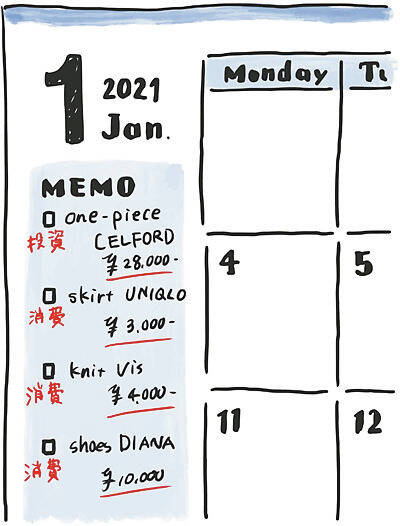 1
2021
Jan.
MEMO
one-piece
投資 CELFORD
¥28,000-
skirt UNIQLO
消費
¥3,000-
knit Vis
消費 ¥4,000-
shoes DIANA
消費 ¥10,000
Monday
4 5
11 12